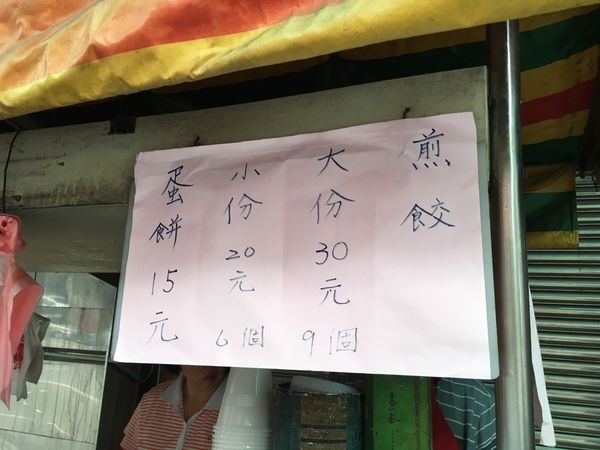 煎餃
大份30元 9個
小份20元 6個
蛋餅15元